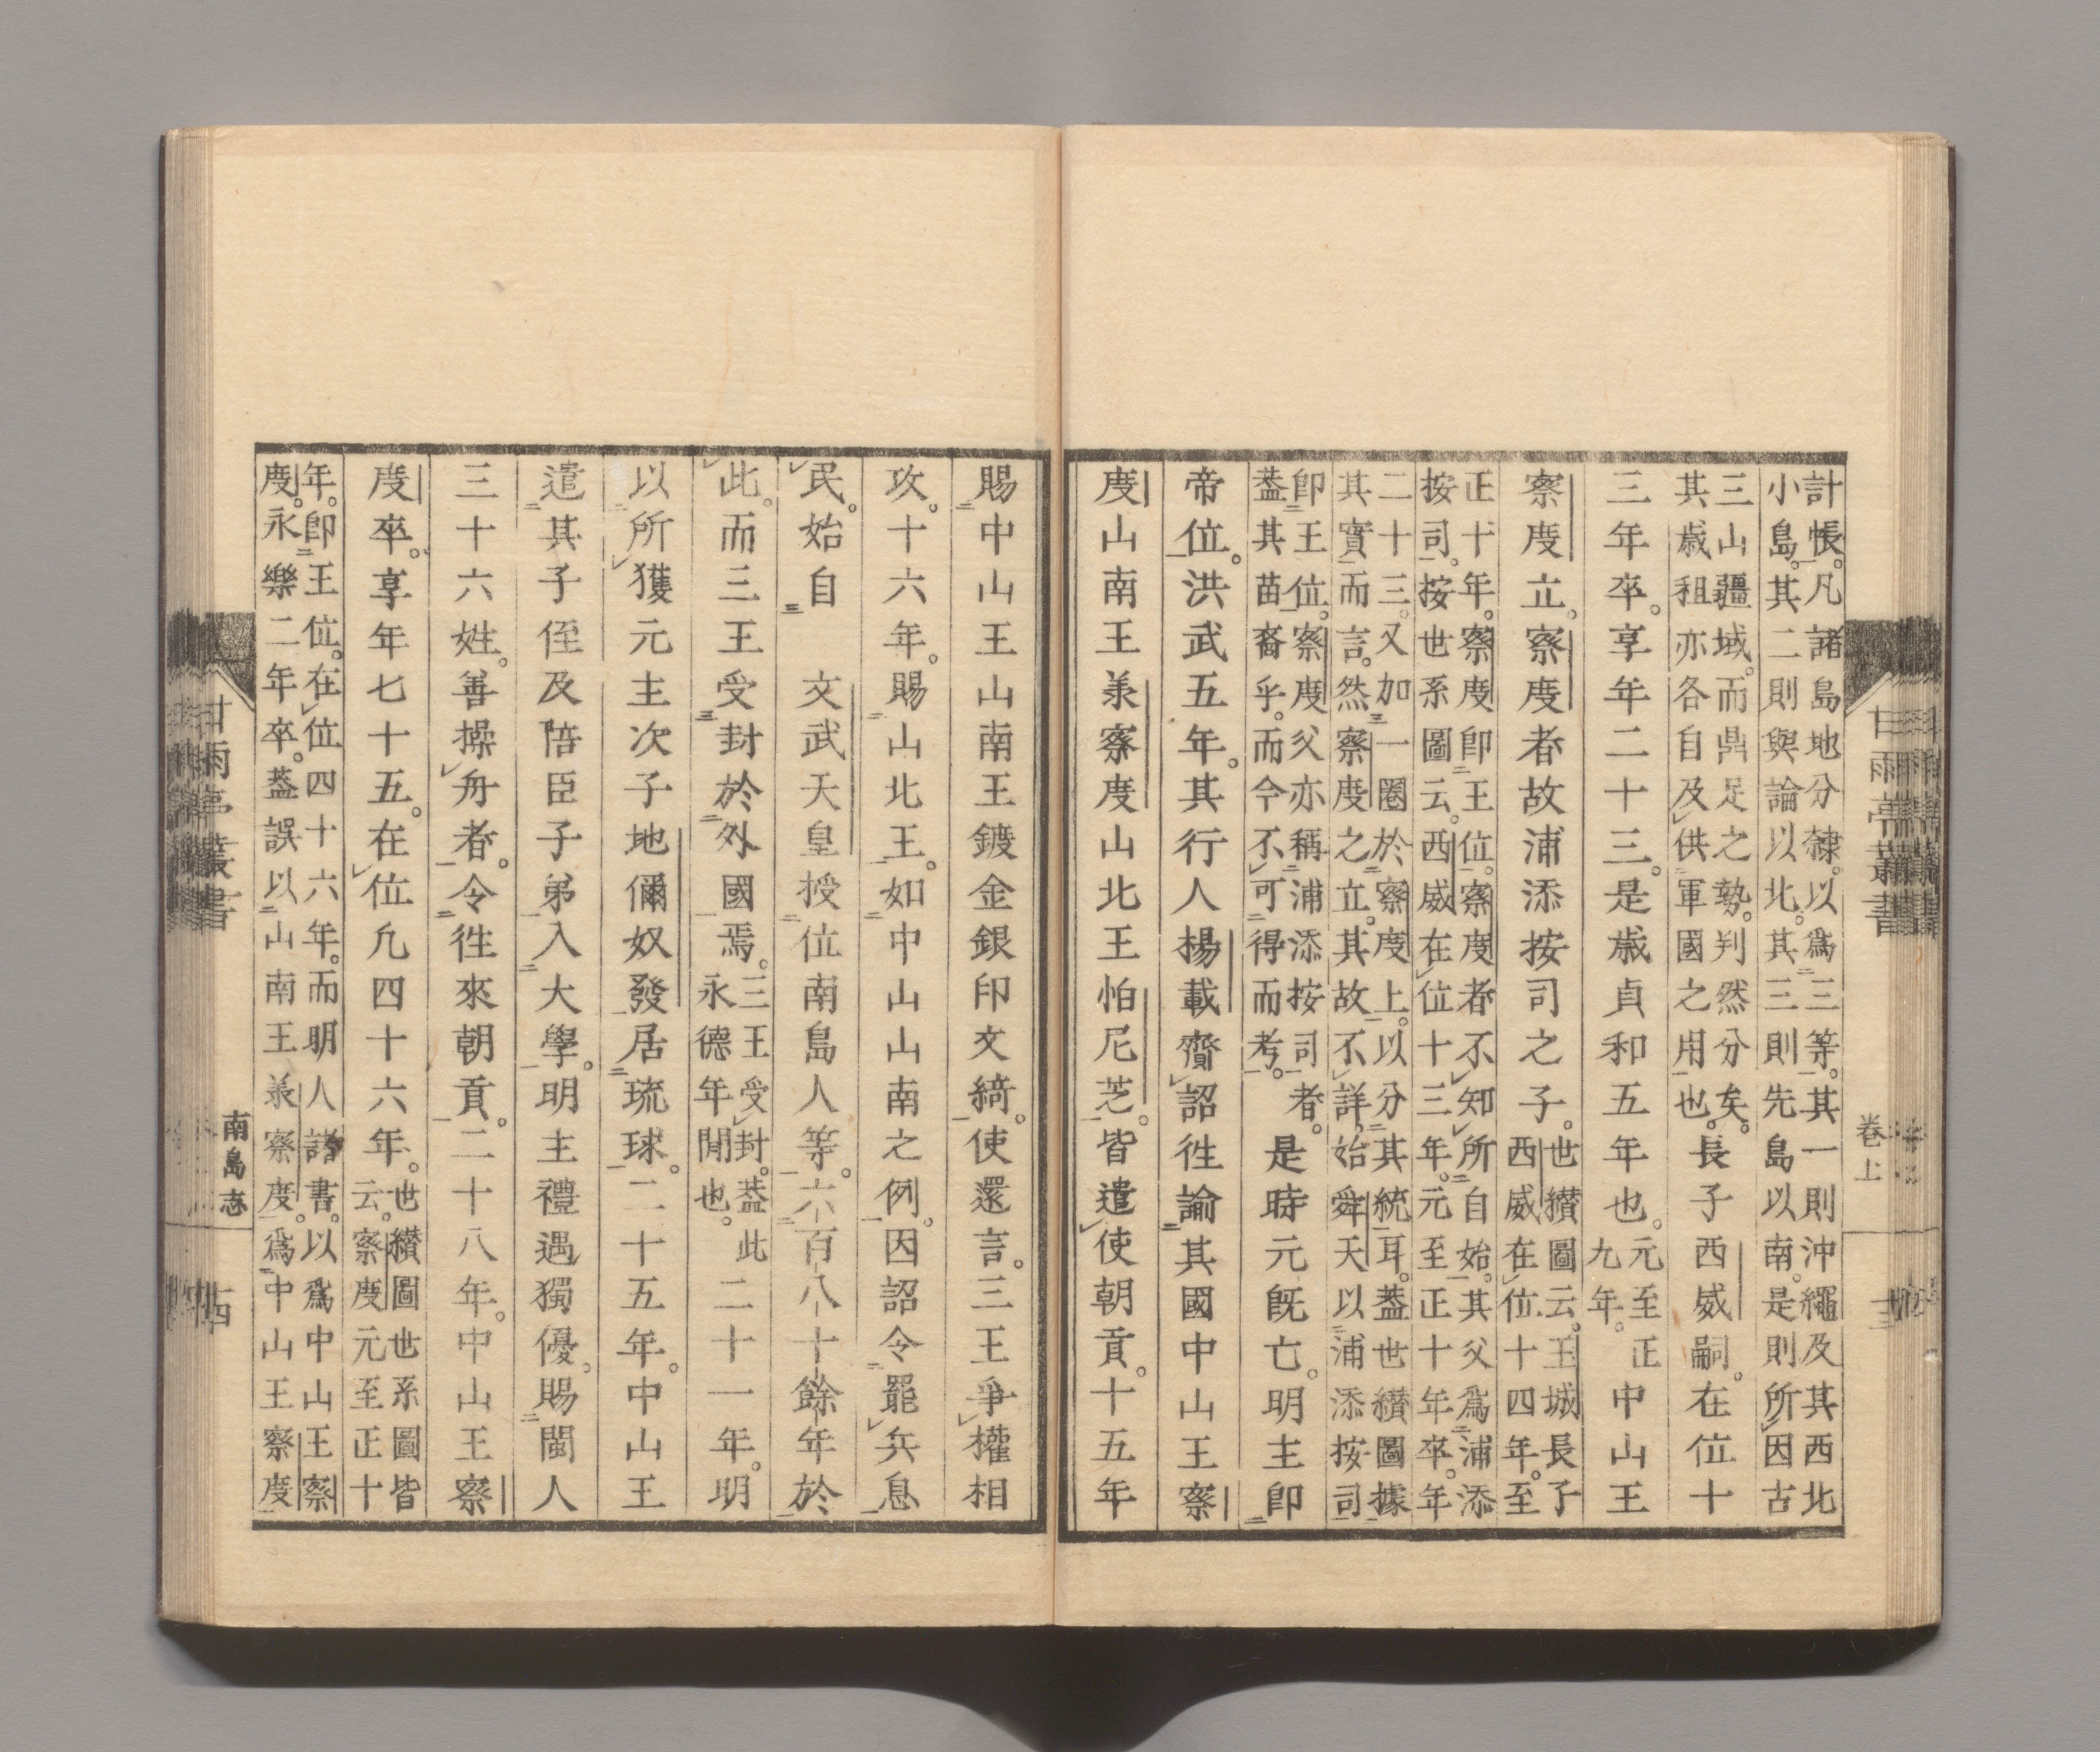 計帳。凡諸島地分隸。以爲三等。其一則沖繩及其西北
小島。其二則與論以北。其三則先島以南。是則所因古
三山疆域。而鼎足之勢。判然分矣。
其歲租亦各自及供軍國之用也。長子西威嗣。在位十
三年卒。享年二十三。是歲貞和五年也。元至正
九年。中山王
察度立。察度者故浦添按司之子。世纉圖云。玉城長子
西威在位十四年。至
正十年。察度卽王位。察度者不知所自始。其父爲浦添
按司。按世系圖云。西威在位十三年。元至正十年卒。年
二十三。又加一圈於察度上。以分其統耳。葢世纉圖據
其實而言。然察度之立。其故不詳。始舜天以浦添按司
卽王位。察度父亦稱浦添按司者。
葢其苗裔乎。而今不可得而考。是時元旣亡。明主卽
帝位。洪武五年。其行人楊載齎詔徃諭其國中山王察
度山南王羕察度山北王怕尼芝。皆遣使朝貢。十五年
甘雨亭叢書
卷上
十三
賜中山王山南王鍍金銀印文綺。使還言。三王爭權相
攻。十六年。賜山北王。如中山山南之例。因詔令罷兵息
民。始自 文武天皇授位南島人等。六百八十餘年於
此。而三王受封於外國焉。三王受封。葢此
永德年閒也。二十一年。明
以所獲元主次子地儞奴發居琉球。二十五年。中山王
遣其子侄及陪臣子弟入大學。明主禮遇獨優。賜閩人
三十六姓。善操舟者。令徃來朝貢。二十八年。中山王察
度卒。享年七十五。在位凡四十六年。世纉圖世系圖皆
云。察度元至正十
年。卽王位。在位四十六年。而明人諸書。以爲中山王察
度。永樂二年卒。葢誤以山南王羕察度。爲中山王察度
甘雨亭叢書
南島志
十四